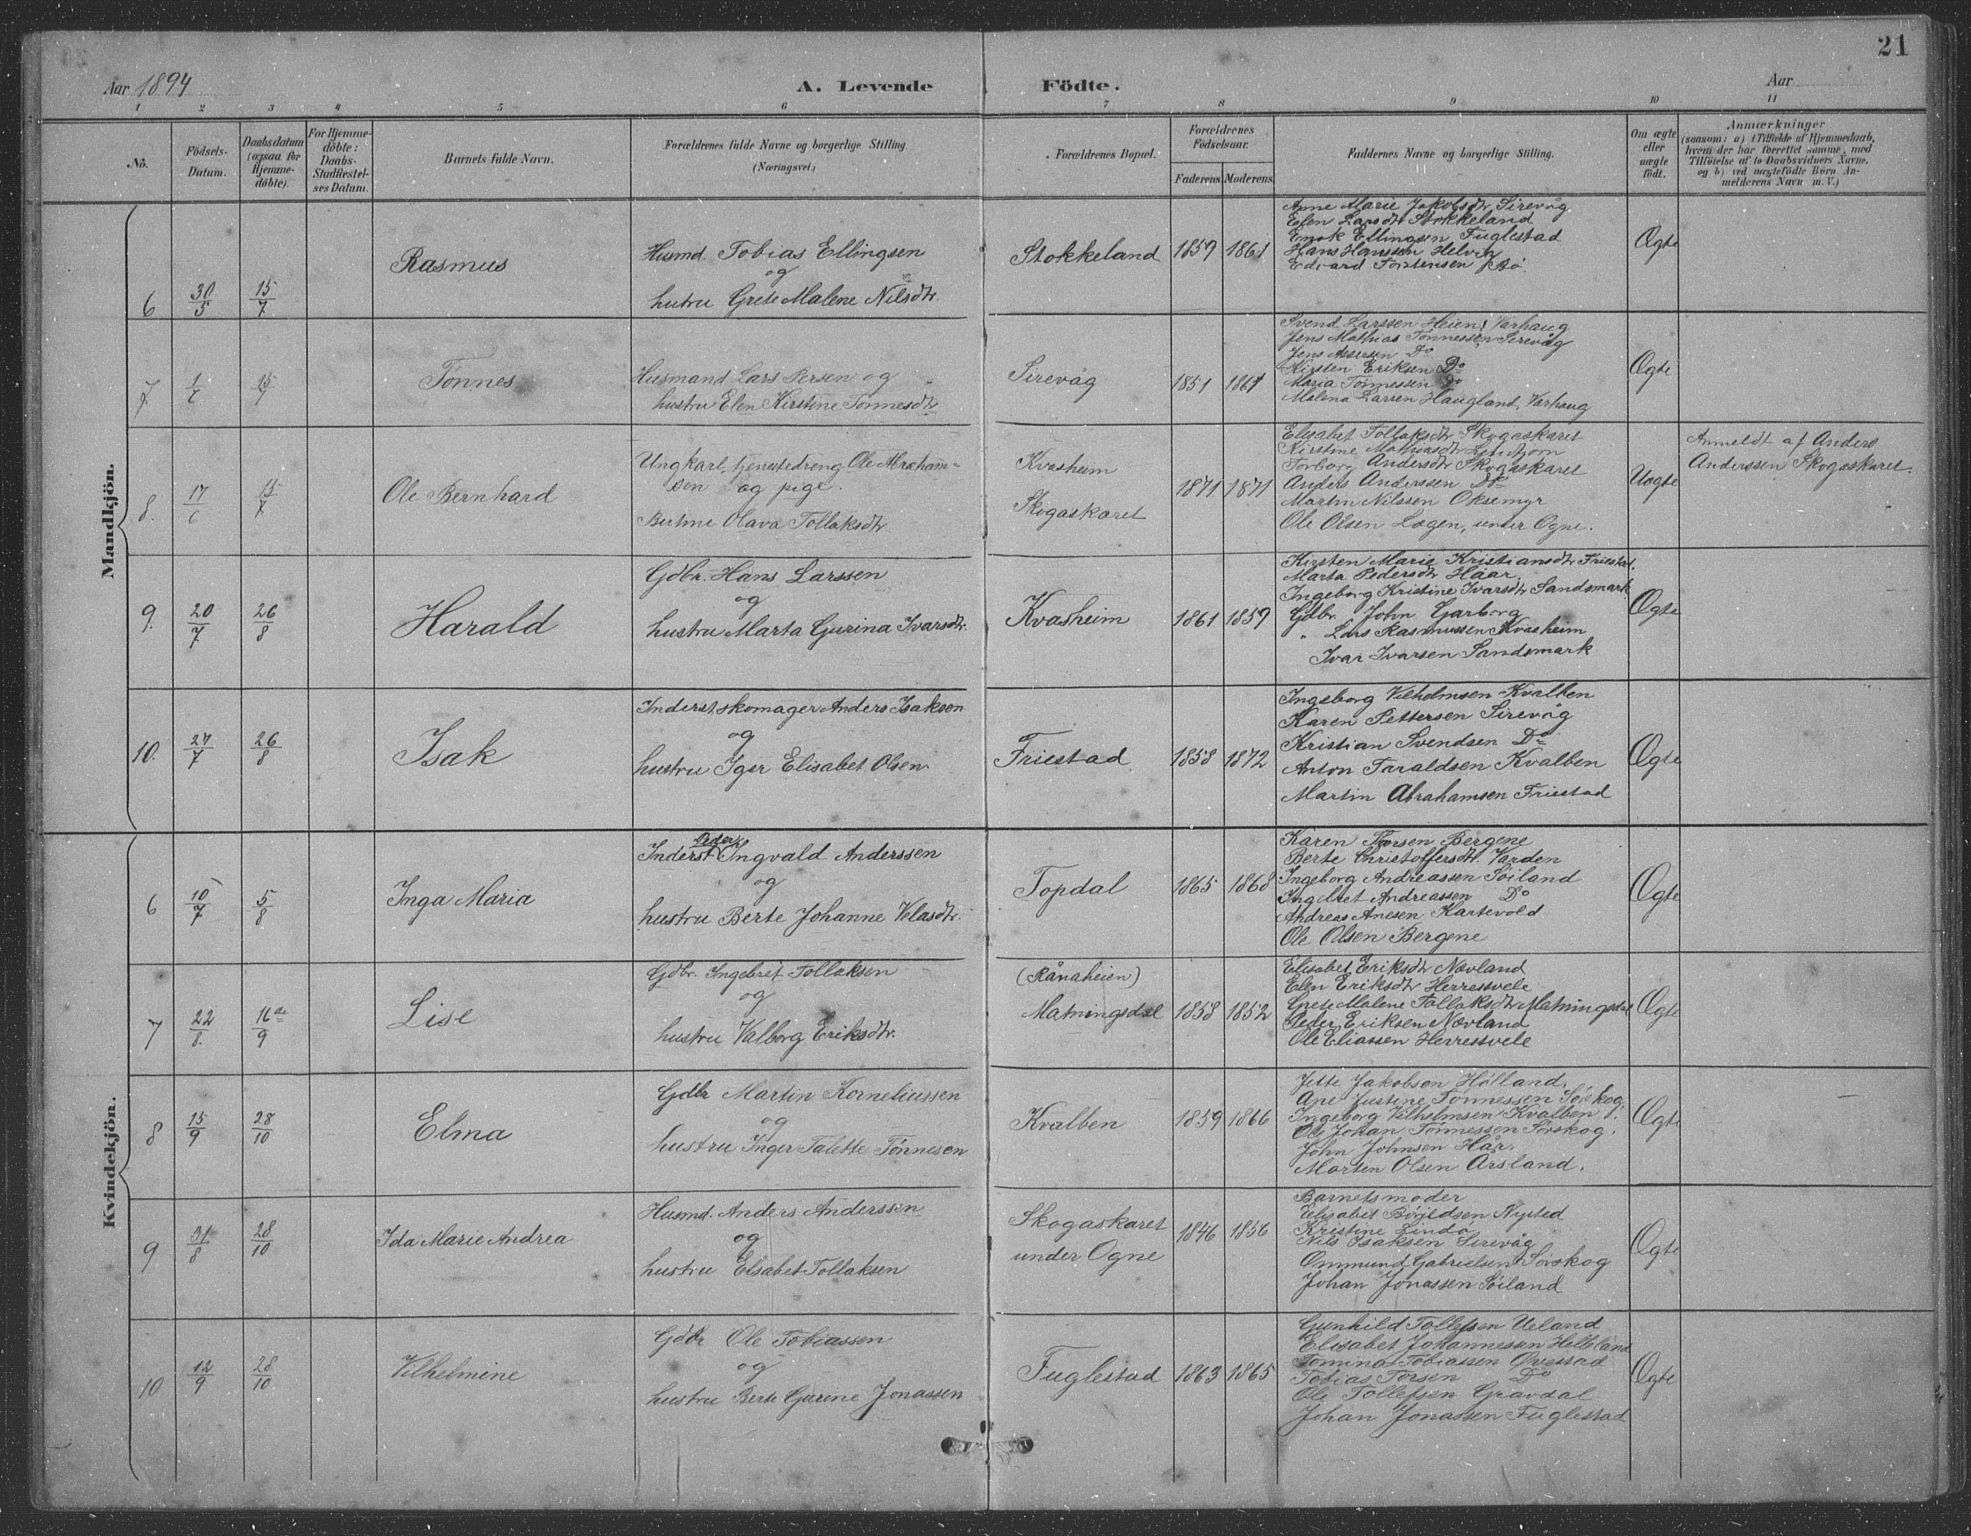 21
Aar 1894
A. Levende Födte.
Aar
1 2 3 4 5 6 7 8 9 10 11
No.
Födsels-Datum.
Daabsdatum (ogsaa for Hjemme-döbte).
For Hjemme-döbte: Daabs-Stadfæstel-ses Datum.
Barnets fulde Navn.
Forældrenes fulde Navne og borgerlige Stilling. (Næringsvei.)
Forældrenes Bopæl.
Forældrenes Födselsaar.
Faderens. Moderens.
Faddernes Navne og borgerlige Stilling.
Om ægte eller uægte födt.
Anmærkninger
(saasom: a) i Tilfælde af Hjemmedaab,
hvem der har forrettet samme, med
Tilföielse af to Daabsvidners Navne.
og b) ved uægtefödte Börn An-
melderens Navn m. V.)
Mandkjön.
6 30/5 15/7
Rasmus
Husmd. Tobias Ellingsen
og
hutru Grete Malene Nilsdtr.
Stokkeland 1859 1861
Anne Marie Jakobsdtr Sirevåg
Elen Larsdtr Stokkeland
Enok Ellingsen Fuglestad
Hans Hanssen Helvig
Edvard Torstensen Bø
Ægte
7. 15/7
Tønnes
Husmand Lars Persen og
hustru Elen Kirstine Tønnesdtr
Sirevåg 1851 1861
Svend Larssen Heien, Varhaug
Jens Mathias Tønnessen Sirevåg
Jens Assersen Do
Kirsten Eriksen Do
Maria Tønnessen Do
Malena Larsen Haugland, Varhaug
Ægte
8. 17/6 15/7
Ole Bernhard
Ungkarl, tjenestedreng Ole Abraham-
sen og pige.
Bertine Olava Tollaksdtr.
Kvasheim
Skogaskaret
1871 1871
Elisabet Tollaksdtr Skogaskaret
Kirstine Mathiasdtr
Torborg Andersdtr Skogaskaret
Anders Anderssen Do
Martin Nilssen Oksemyr
Ole Olsen Lægen, under Ogne.
Uægte
Anmeldt af Anders
Anderssen Skogaskaret.
9. 20/7 26/8
Harald
Gdbr. Hans Larssen
og
hustru Marta Gurina Ivarsdtr.
Kvasheim 1861 1859
Kirsten Marie Kristiansdtr Friestad.
Marta Pedersdtr Håar.
Ingeborg Kristine Ivarsdtr Sandsmark
Gdbr. John Garborg
" Lars Rasmussen Kvasheim
Ivar Ivarsen Sandsmark
Ægte
10. 27/7 26/8
Isak
Inderst, skomager Anders Isaksen
og
hustru Iger Elisabet Olsen.
Friestad 1858 1872
Ingeborg Vilhelmsen Kvalben
Karen Pettersen Sirevåg
Kristian Svendsen Do
Anton Taraldsen Kvalben
Martin Abrahamsen Friestad
Ægte
Kvindekjön.
6 10/7 5/8
Inga Maria
Peder
Inderst Ingvald Anderssen
og
hustru Berte Johanne Velasdtr.
Topdal 1865 1868
Karen Thorsen Bergene
Berte Christoffersdtr. Varden
Ingeborg Andreassen Søiland
Ingebret Andreassen Do
Andreas Anesen Hartevold
Ole Olsen Bergene
Ægte
7 22/8. 16de/9
Lise
Gdbr. Ingebret Tollaksen
og
hustru Valborg Eriksdtr.
(Rånaheien)
Matningsdal 1858 1852
Elisabet Eriksdtr Nævland
Elen Eriksdtr Herresvele
Grete Malene Tollaksdtr Matningsdal
Peder Eriksen Nævland
Ole Eliassen Herresvele
Ægte
8 15/9 28/10
Elma
Gdbr Martin Korneliussen
og
hustru Inger Talette Tønnesen
Kvalben 1859 1866
Jette Jakobsen Hølland.
Ane Justine Tønnessen Sørskog
Ingeborg Vilhelmsen Kvalben
Ole Johan Tønnessen Sørskog.
John Johnsen Hår.
Morten Olsen Årsland.
Ægte
9 31/8 28/10
Ida Marie Andrea
Husmd. Anders Anderssen
og
hustru Elsabet Tollaksen
Skogaskaret
under Ogne
1846 1856
Barnets moder
Elisabet Børildsen Nysted
Kristine Lindø
Nils Isaksen Sirevåg
Ommund Gabrielsen Sørskog
Johan Jonassen Søiland
Ægte
10 12/9 28/10
Vilhelmine
Gdbr Ole Tobiassen
og
hustru Berte Gurine Jonassen
Fuglestad 1863 1865
Gunhild Tollefsen Ueland
Elisabet Johannessen Helleland
Tomina Tobiassen Ovestad
Tobias Torsen Do
Ole Tollefsen Gravdal
Johan Jonassen Fuglestad
Ægte